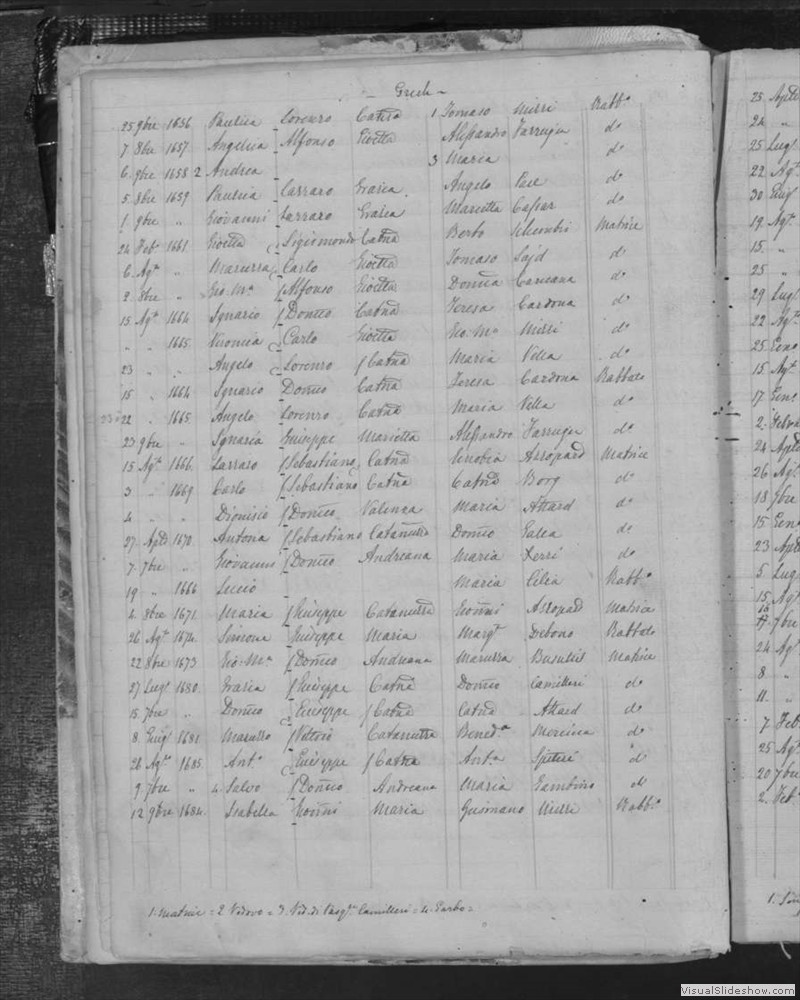 - Grech -
25 9bre 1656 Paulica Lorenzo Catna 1 Tomaso Mizzi Rabbo
7 8bre 1657 Angelica Alfonso Gioetta Alessandro Farrugia do
6. 9bre 1658 2 Andrea 3 Maria do
5. 8bre 1659 Paulica Lazzaro Grazia Angelo Pace do
1. 9bre " Giovanni Lazzaro Grazia Marietta Caspar do
24 Feb. 1661 Gioetta Sigismondo Catna Berto Schembri Matrice
6. Agt " Maruzza Carlo Gioetta Tomaso Sajd do
2. 8bre " Gio: Ma Alfonso Gioetta Domca Caruana do
15 Agt 1664 Ignazio Domco Catna Teresa Cardona do
" " 1665. Veronica Carlo Gioetta Gio. Ma Mizzi do
23 " " Angelo Lorenzo Catna Maria Vella do
15 " 1664 Ignazio Domco Catna Teresa Cardona Rabbato
22 " 1665. Angelo Lorenzo Catna Maria Vella do
23 9bre " Ignazia Giuseppe Marietta Alessandro Farrugia do
15 Agt 1666. Lazzaro Sebastiano Catna Zenobia Axopard Matrice
3 " 1669. Carlo Sebastiano Catna Catna Borg do
4 " " Dionisio Domco Valenza Maria Attard do
27. Aple 1670. Antona Sebastiano Catanuzza Domco Galea do
7. 7bre " Giovanni Domco Andreana Maria Xerri do
19 " 1666 Lucio Maria Cilia Rabbo
4. 8bre 1671. Maria Giuseppe Catanuzza Gionni Axopard Matrice
26 Agt 1674. Simone Giuseppe Maria Margt Debono Rabbato
22 8bre 1673 Gio: Ma Domco Andreana Maruzza Busuttil Matrice
27 Lugl 1680. Grazia Giuseppe Catna Domco Camilleri do
15. 7bre " Domco Giuseppe Catna Catna Attard do
8. Giugl 1681 Vittorio Catarnuzza Beneda Mercieca do
28 Agto 1685. Anto Giuseppe Catna Anta Spiteri do
9 7bre " 4. Salvo Domco Andreana Maria Gambino do
12 9bre 1684. Isabella Gionni Maria Gusmano Mizzi Rabbo
1. Matrice = 2 Vedovo = 3. Ved. di Pasqle Camilleri = 4. Garbo =
23 Aple
24 "
25 Lugl
22 Agt
30 Giugl
19 Agt
15. "
25 "
29 Lugl
22 Agt
25 Geno
15 Agt
17 Geno
2.
24 Aple
26 Agt
18 7bre
15 Geno
23 Aple
5 Lugl
15 Agt
7bre
24 Agt
8 "
11. "
7 Feb
25 Agt
20 7bre
2. Feb
1.
VisualSlideshow.com